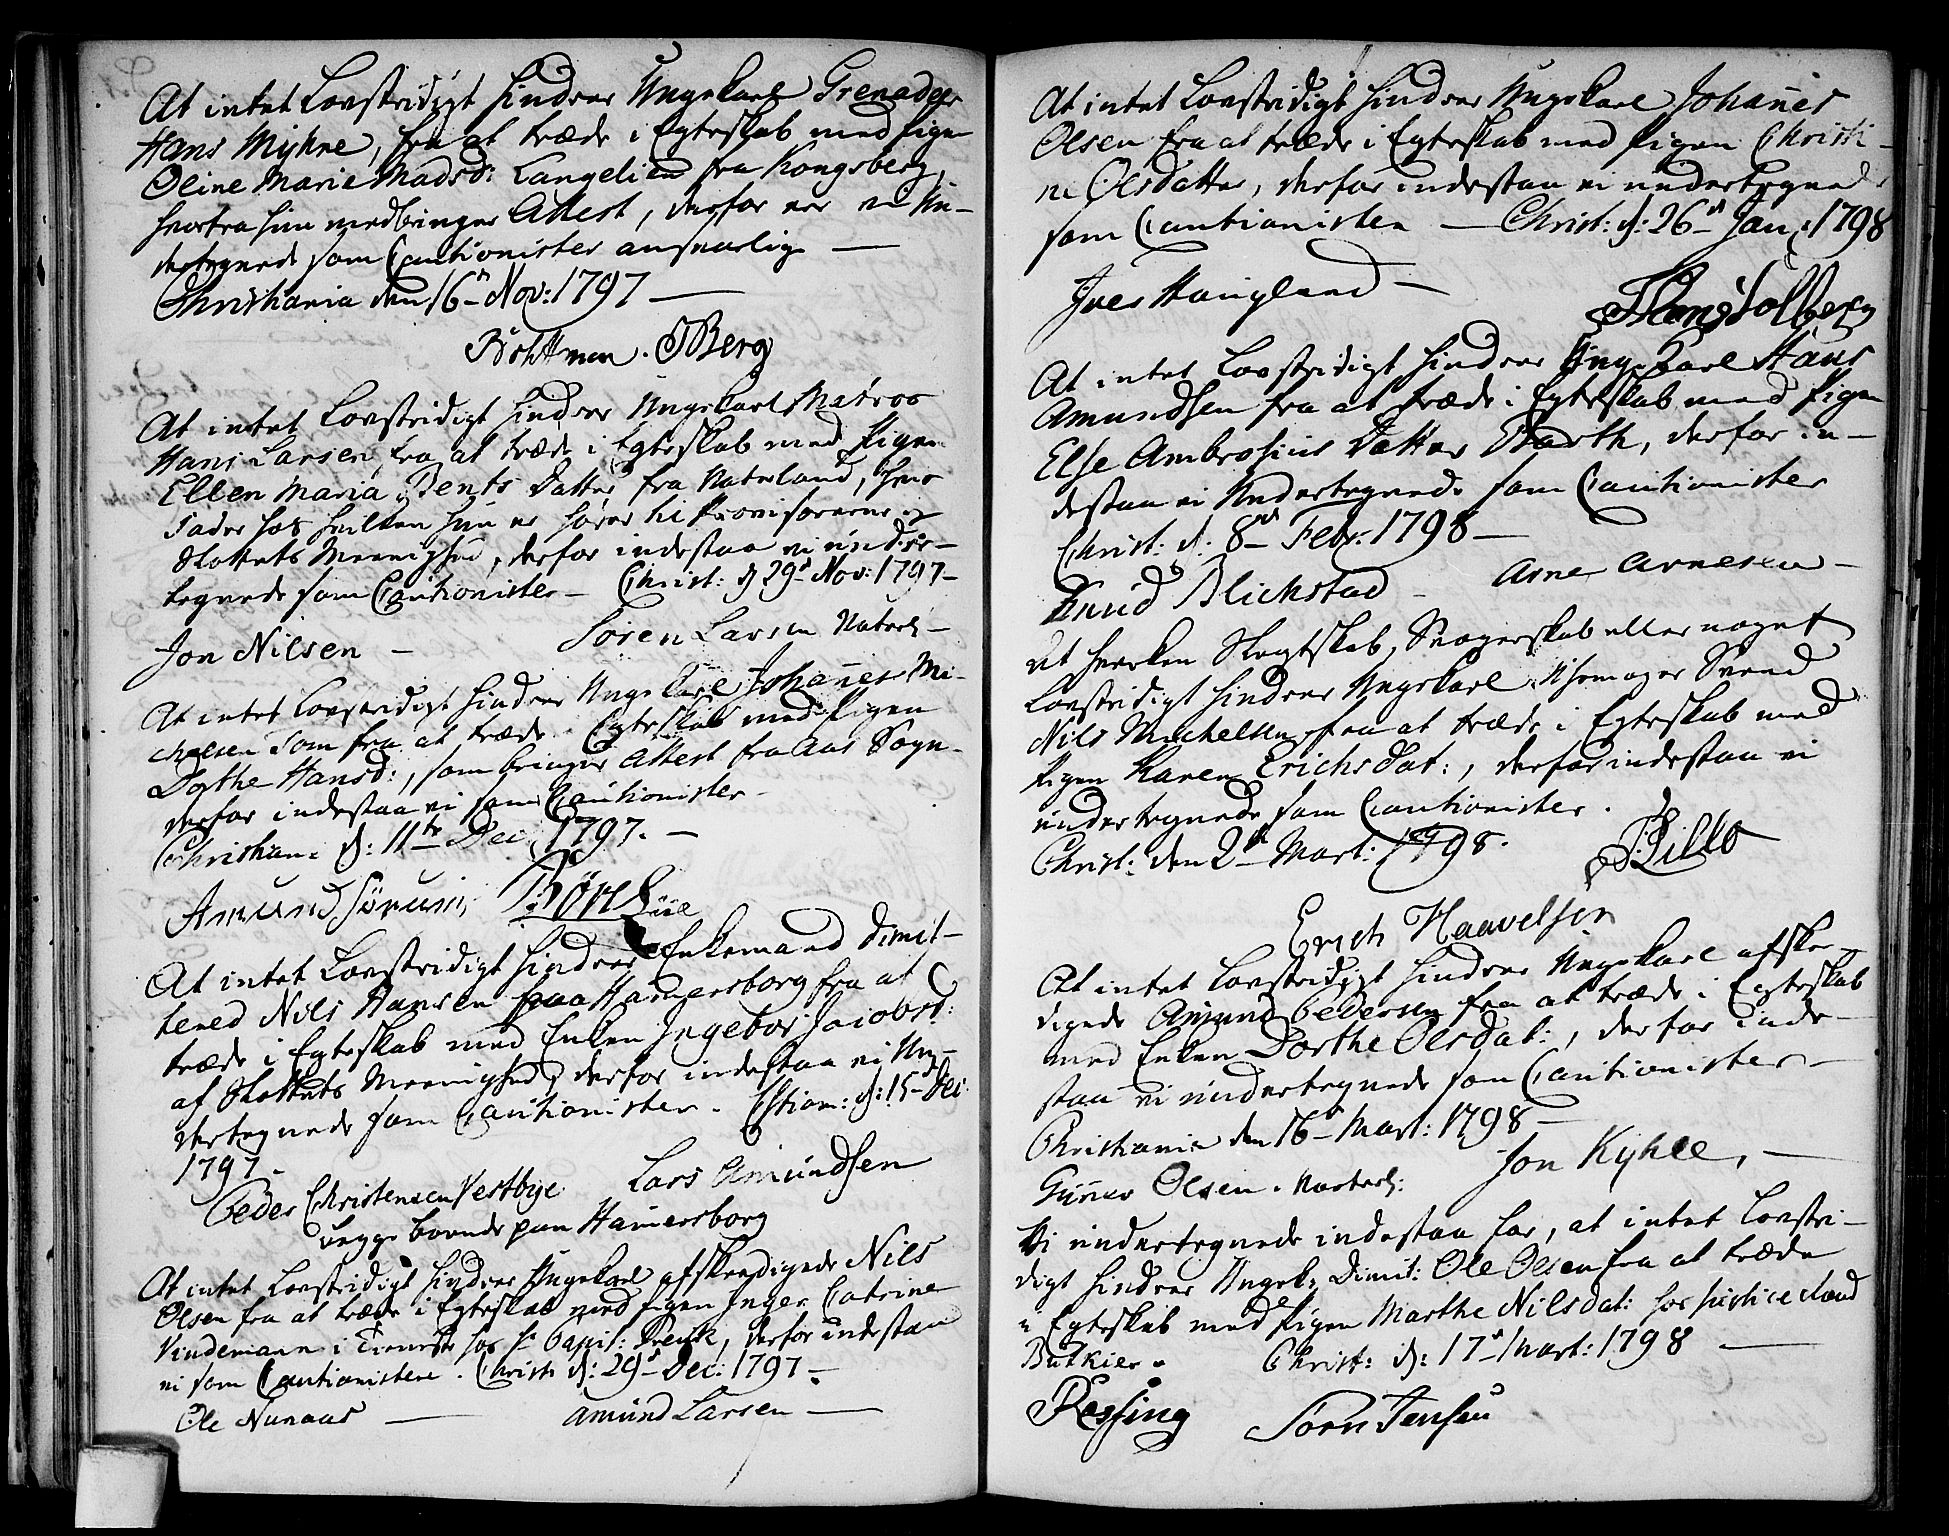 At intet Lovstridigt hindrer Ungekarl Grenadeer
Hans Myhre, fra at træde i Egteskab med Pigen
Oline Marie Madsd: Langeliand fra Kongsberg,
hvorfra hun medbringer Attest, derfor ere vi Un-
dertegnede som Cautionister answarlige
Christiania den 16 Nov: 1797
Berg
At intet Lovstridigt hindrer Ungekarl Matros
Hans Larsen fra at træde i Egteskab med Pigen
Ellen Maria Bents Datter fra Waterland, hvis
Fader hos hvilken hun er hører til
Slottets Meenighed, derfor indestaa vi under-
tegnede som Cautionister Christ: d 29 Nov: 1797
Jon Nilsen Sören Larsen Waterl:
At intet Lovstridigt hindrer Ungekarl Johañes Mi-
chelsen fra at træde i Egteskab med Pigen
Dorthe Hansd:, som bringer Attest fra Aas Sogn
derfor indestaa vi som Cautionister
Christian: d: 11te Dec 1797.
Amund Sörum,
At intet Lovstridigt hindrer Enkemand dimit-
tered Nils Hansen paa Hamersborg fra at
træde i Egteskab med Enken Ingebor Jacobsd:
af Slottets Meenighed, derfor indestaa vi Un-
dertegnede som Cautionister. d: 15 Dec:
1797
Peder Christensen Vestbye Lars Amundsen
begge boende paa Hamersborg
At intet Lovstridigt hindrer Ungekarl afskeedigede Nils
Olsen fra at træde i Egteskab med Pigen Inger Catrine
Vindemann i Tieneste hos Hr Capit: derfor indestaa
vi som Cautionistere. Christ: d: 29 Dec: 1797
Ole Nunaas Amund Larsen
At intet Lovstridigt hindrer Ungekarl Johañes
Olsen fra at træde i Egteskab med Pigen Christi-
ne Olsdatter, derfor indestaa vi undertegnede
som Cautionister Christ: d: 26 Jan: 1798
Iver Haugland Hans Solberg
At intet Lovstridigt hindrer Ungekarl Hans
Amundsen fra at træde i Egteskab med Pigen
Else Ambrosius Datter Barth, derfor in-
destaa vi Undertegnede som Cautionister
Christ: d: 8 Febr. 1798
Knud Blichstad Arne Arnesen
At hverken Slegtskab, Svogerskab eller noget
Lovstridigt hindrer Ungekarl Svend
Nils Michelsen fra at træde i Egteskab med
Pigen Karen Erichsdat:, derfor indestaa vi
undertegnede som Cautionister.
Christ: den 2 Mart: 1798.
Erich Haavelsen
At intet Lovstridigt hindrer Ungekarl afskee-
digede Amund Pedersen fra at træde i Egteskab
med Enken Dorthe Olsdat:, derfor inde-
staa vi undertegnede som Cautionister
Christiania den 16 Mart: 1798
Guñer Olsen. Jon Kyhle,
Vi undertegnede indestaa for, at intet Lovstri-
digt hindrer Ungek: Dimit: Ole Olsen fra at træde
i Egteskab med Pigen Marthe Nilsdat: hos Justice Raad
Bütkier Christ: d: 17 Mart: 1798
Ressing Sörn Jensen